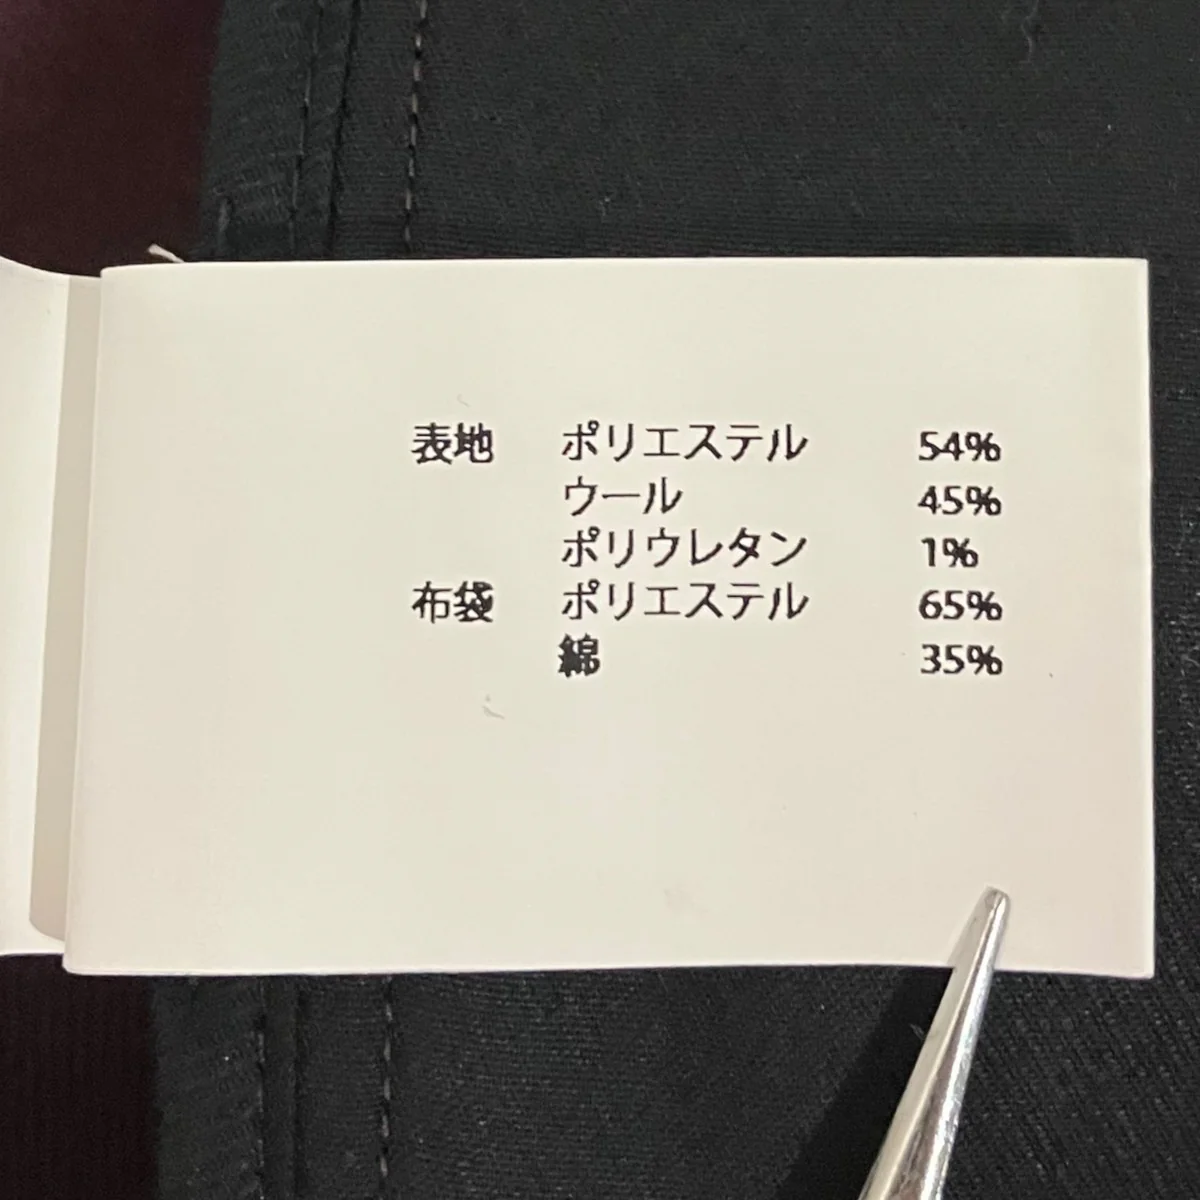 表地 ポリエステル 54%
ウール 45%
ポリウレタン 1%
布袋 ポリエステル 65%
綿 35%